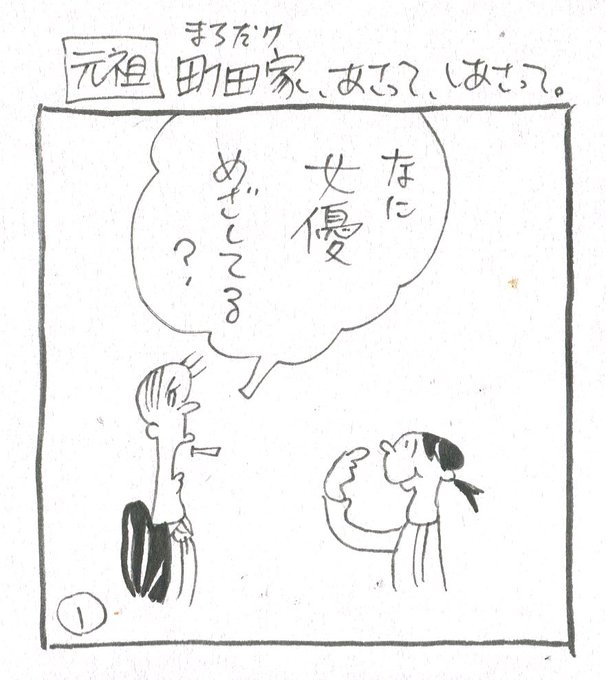 まちだケ
元祖 町田家、あさって、しあさって。
なに
女優
めざしてる
?
1